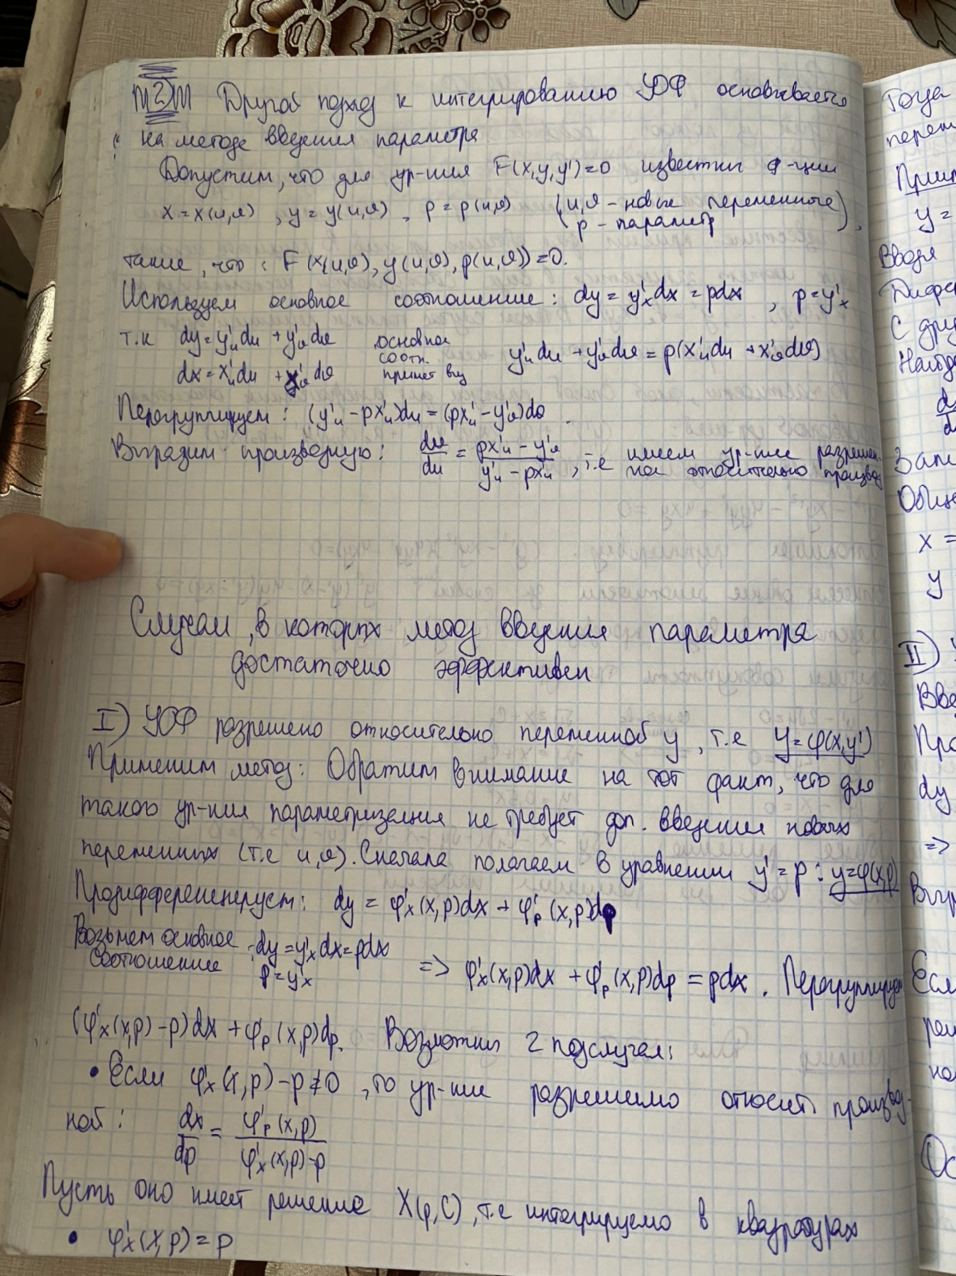 m2m Другой подход к интегрированию УОФ основывается
на методе введения параметра
Допустим, что для ур-ния F(x,y,y')=0 известны ф-ции
x=x(u,v), y=y(u,v), p=p(u,v) (u,v - новые переменные),
p - параметр
такие, что: F(x(u,v), y(u,v), p(u,v))=0.
Используем основное соотношение: dy=y'ₓdx=pdx, p=y'ₓ
т.к dy=y'ᵤdu+y'ᵥdv основное
соотн. y'ᵤdu+y'ᵥdv=p(x'ᵤdu+x'ᵥdv)
dx=x'ᵤdu+x'ᵥdv примет вид
Перегруппируем: (y'ᵤ-px'ᵤ)du=(px'ᵤ-y'ᵥ)dv.
Выразим производную: du/du = (px'ᵤ-y'ᵥ)/(y'ᵤ-px'ᵤ), т.е имеем ур-ние разрешен-
ное относительно произв
Случаи, в которых метод введения параметра
достаточно эффективен
I) УОФ разрешено относительно переменной y, т.е y=φ(x,y')
Применим метод: Обратим внимание на тот факт, что для
такого ур-ния параметризация не требует доп. введения новых
переменных (т.е u,v). Сначала полагаем в уравнении y'=p: y=φ(x,p)
Продифференцируем: dy=φ'ₓ(x,p)dx+φ'ₚ(x,p)dp
Возьмем основное
соотношение: dy=y'ₓdx=pdx
p=y'ₓ => φ'ₓ(x,p)dx+φ'ₚ(x,p)dp=pdx. Перегруппируем
(φ'ₓ(x,p)-p)dx+φ'ₚ(x,p)dp. Возможны 2 подслучая:
• Если φ'ₓ(x,p)-p≠0, то ур-ние разрешимо относит. производ-
ной: dx/dp = φ'ₚ(x,p)/(φ'ₓ(x,p)-p)
Пусть оно имеет решение X(p,C), т.е интегрируемо в квадратурах
• φ'ₓ(x,p)=p
Тогда
перем
y=
Вводя
С дру
x=
y
II)
Вве
dy
=>
Если